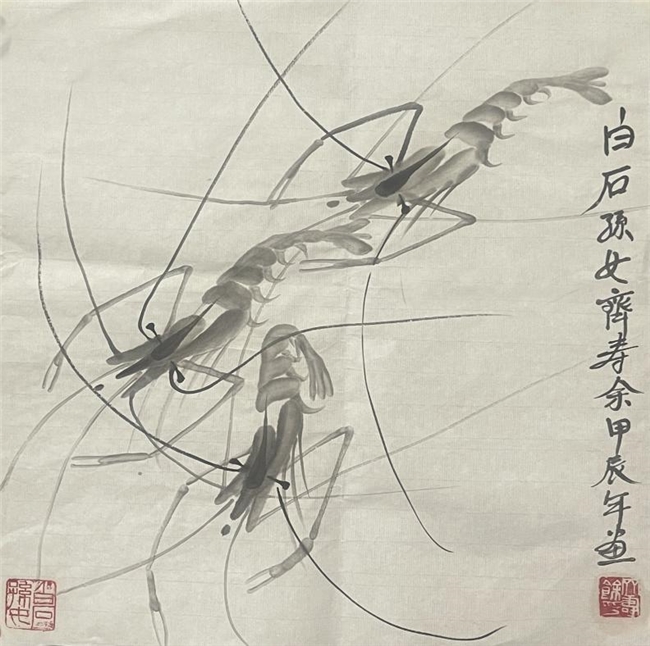 白石孫女齊寿余甲辰年画